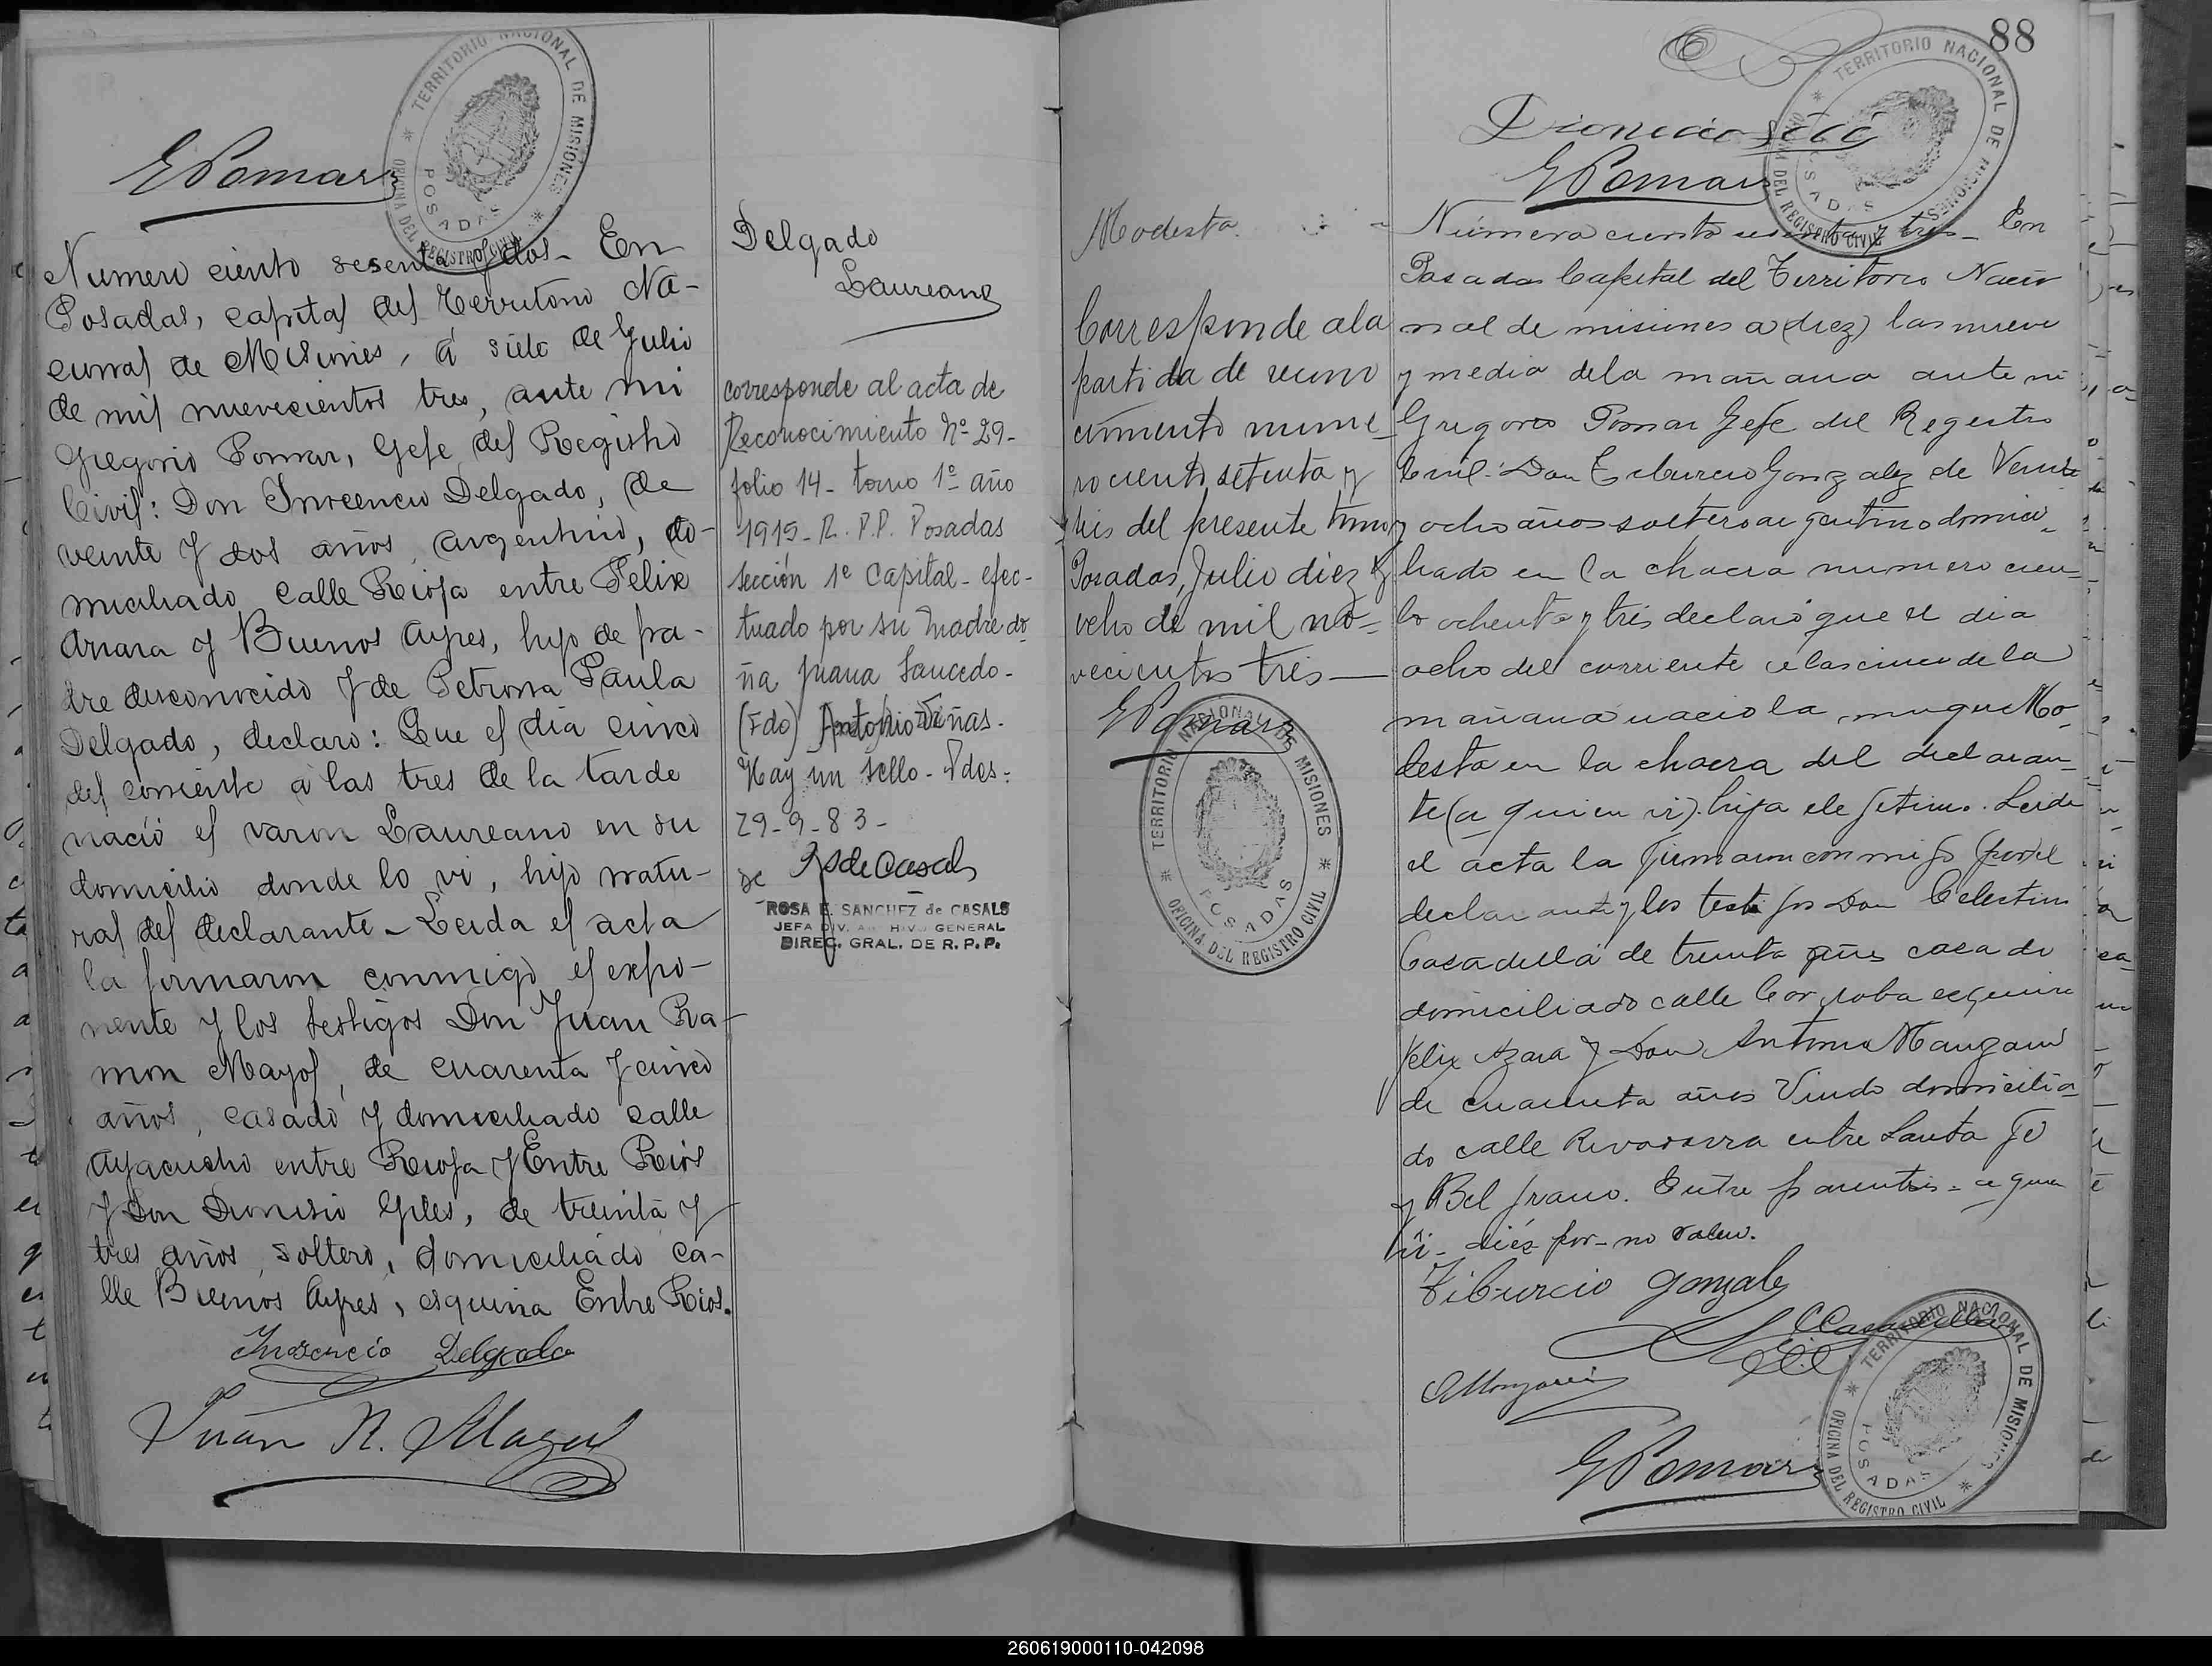 TERRITORIO NACIONAL DE MISIONES
OFICINA DEL REGISTRO CIVIL
POSADAS
GPomar
Numero ciento sesenta y dos - En
Posadas, capital del Territorio Na-
cional de Misiones, á siete de Julio
de mil nuevecientos tres, ante mi
Gregorio Pomar, Gefe del Registro
Civil: Don Inocencio Delgado, de
veinte y dos años, argentino, do-
miciliado calle Rioja entre Felix
Azara y Buenos Ayres, hijo de pa-
dre desconocido y de Petrona Paula
Delgado, declaro: Que el dia cinco
del corriente á las tres de la tarde
nació el varon Laureano en su
domicilio donde lo vi, hijo natu-
ral del declarante - Leida el acta
la firmaron conmigo el expo-
nente y los testigos Don Juan Ra-
mon Mayol, de cuarenta y cinco
años, casado y domiciliado calle
Ayacucho entre Rioja y Entre Rios
y Don Dionisio Giles, de treinta y
tres años, soltero, domiciliado ca-
lle Buenos Ayres, esquina Entre Rios.
Inosencio Delgado
Juan R. Mayol
Delgado
Laureano
corresponde al acta de
Reconocimiento Nº 29-
folio 14- tomo 1º año
1919- R. P.P. Posadas
sección 1ª Capital- efec-
tuado por su madre do-
ña Juana Saucedo-
(Fdo) Antonio Viñas.
Hay un sello- Pdas-
29-9-83-
ROSA E. SANCHEZ de CASALS
JEFA DIV. ARCHIVO GENERAL
DIREC. GRAL. DE R.P.P.
88
TERRITORIO NACIONAL DE MISIONES
OFICINA DEL REGISTRO CIVIL
POSADAS
GPomar
Modesta
Corresponde a la
partida de recono
cimiento nume-
ro ciento setenta y
tres del presente tomo
Posadas, Julio diez y
ocho de mil no-
vecientos tres—
GPomar
TERRITORIO NACIONAL DE MISIONES
OFICINA DEL REGISTRO CIVIL
POSADAS
Número ciento sesenta y tres - En
Posadas Capital del Territorio Nacio
nal de misiones a (diez) las nueve
y media de la mañana ante mi
Gregorio Pomar Jefe del Registro
Civil: Don Tiburcio Gonzalez de Veinte
y ocho años soltero argentino domici-
liado en la chacra numero cien-
to ochenta y tres declaró que el dia
ocho del corriente a las cinco de la
mañana nacio la mujer Mo-
desta en la chacra del declaran-
te (a quien vi) hija de
el acta la firmaron conmigo el
declarante y los testigos Don Celestino
Casadellá de treinta años casado
domiciliado calle Cordoba esquina
Felix Azara y Don Antonio Manzani
de cuarenta años Viudo domicilia-
do calle Rivadavia entre Santa Fé
y Belgrano. Entre parentesis = a quien
vi - diez - por - no valen.
Tiburcio Gonzalez
CCasadella
AManzani
GPomar
TERRITORIO NACIONAL DE MISIONES
OFICINA DEL REGISTRO CIVIL
POSADAS
260619000110-042098